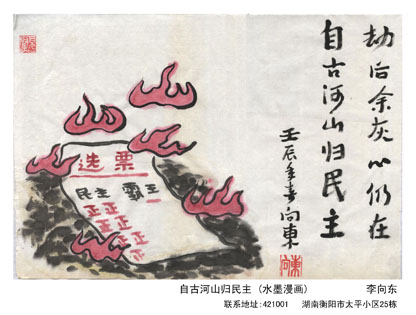 劫后余灰心仍在
自古河山归民主
壬辰年春向東
向東
选票
民主 霸主
正正
正正
正正
正正
自古河山归民主 (水墨漫画) 李向东
联系地址:421001 湖南衡阳市太平小区25栋